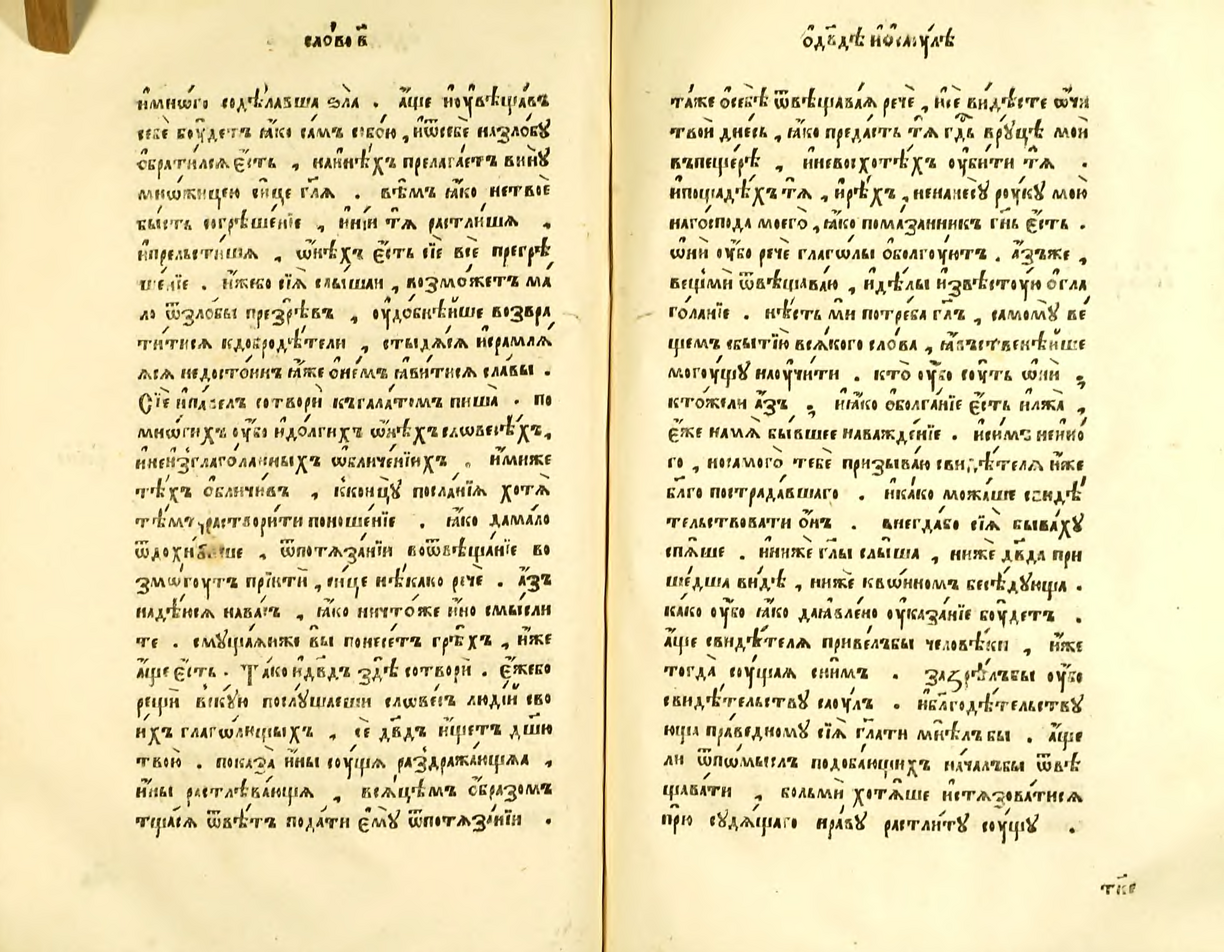 сло́во в҃
и҆мнѡ́гꙋ содѣ́лавша ѕла̀ . а҆́ще и҆оувѣща́въ
себѐ бꙋ́детъ ꙗ҆́ко са́мъ собо́ю , и҆ѿсебѐ назло́бꙋ
ѡ҆брати́лсѧ є҆́сть , наи҆нѣ́хъ прелага́етъ винꙋ̀
мнѡ́жицею си́це гл҃ѧ . вѣ́мъ ꙗ҆́ко нетвоѐ
бы́сть согрѣше́нїе , и҆ні́и тѧ̀ растли́шѧ ,
и҆прельсти́шѧ , ѡ҆нѣ́хъ є҆́сть сїѐ всѐ прегрѣ
ше́нїе . и҆́жебо сїѧ̀ слы́шаи , возмо́жетъ ма́
ло ѿзло́бы презрѣ́въ , оу҆до́бнѣйше возвра
ти́тисѧ кдобродѣ́тели , стыдѧ́сѧ и҆срамлѧ́
ѧсѧ недосто́инъ ꙗ҆́же ѻ҆не́мъ ꙗ҆ви́тисѧ сла́вы .
Сїѐ и҆па́велъ сотворѝ къгала́томъ пиша̀ . по
мнѡ́гихъ оу҆́бо и҆до́лгихъ ѡ҆нѣ́хъ слѡвесѣ́хъ ,
и҆неизглаго́ланныхъ ѡ҆бличе́нїихъ , и҆́миже
тѣ́хъ ѡ҆бличи́въ , кконцꙋ̀ посла́нїѧ хотѧ̀
тѣ́мъ раствори́ти поноше́нїе . ꙗ҆́ко дама́ло
ѿпотѧза́нїи воѿвѣща́нїе во
змо́гоутъ прїи́ти , си́це нѣ́како речѐ . а҆́зъ
надѣ́юсѧ нава́съ , ꙗ҆́ко ничто́же и҆́но смы́сли
те . смꙋща́ѧиже вы̀ понесе́тъ грѣ́хъ , и҆́же
а҆́ще є҆́сть . Та́ко и҆дв҃дъ здѣ̀ сотворѝ . є҆́жебо
рещѝ вскꙋ́ю послꙋ́шаеши слове́съ люді́й сво
и́хъ глаго́лющихъ , сѐ дв҃дъ и҆́щетъ дш҃ю
твою̀ . показа̀ и҆́ны соущѧ раздража́ющаѧ ,
и҆́ны растлѣва́ющѧ , всѧ́цѣмъ ѻ҆́бразомъ
тща́сѧ ѿвѣ́тъ пода́ти є҆мꙋ̀ ѿпотѧза́нїи .
ѻ҆дв҃дѣ и҆ѻ҆саꙋ́лѣ
та́же ѻ҆себѣ̀ ѿвѣщава́ѧ речѐ , и҆сѐ ви́дѣсте ѻ҆́чи
твоѝ дне́сь , ꙗ҆́ко предастъ тѧ̀ гд҃ь врꙋ́цѣ моѝ
въпеще́рѣ , и҆невосхотѣ́хъ оу҆би́ти тѧ̀ .
и҆пощадѣ́хъ тѧ̀ , и҆рѣ́хъ , ненанесꙋ̀ роукꙋ̀ мою̀
нагоспода моего̀ , ꙗ҆́ко пома́занникъ гн҃ь є҆́сть .
ѡ҆ни́ оу҆́бо речѐ глаго́лы ѻ҆болгоую́тъ . а҆́зъже ,
ве́щїми ѿвѣщава́ю , и҆дѣ́лы и҆звѣстоую ѻ҆гла
го́ланїе . нѣ́сть мѝ потре́ба гл҃ъ , самомꙋ̀ ве́
щемъ сбытїю̀ всѧ́кого сло́ва , ꙗ҆́вьственѣйше
могоущꙋ наоучи́ти . кто̀ оу҆́бо соуть ѡ҆нѝ ;
кто́жели а҆́зъ ; и҆ꙗ҆́ко ѻ҆болга́нїе є҆́сть и҆лжа̀ ,
є҆́же намѧ̀ бы́вшее наважде́нїе . и҆си́мъ неи҆но
го , носамого̀ тебѐ призыва́ю свидѣ́телѧ и҆́же
бл҃го пострада́вшаго . и҆ка́ко можа́ше свидѣ́
тельствовати ѻ҆́нъ . внегда́бо сїѧ̀ быва́хꙋ
спѧ́ше . и҆ни́же гл҃ы слы́ша , ни́же дв҃да при
ше́дша ви́дѣ , ни́же квѡ́иномъ бесѣ́дꙋюща .
ка́ко оу҆́бо ꙗ҆́ко даꙗ҆вле́но оу҆каза́нїе бꙋ́детъ .
а҆́ще свидѣ́телѧ приве́лъбы человѣ́ки , и҆́же
тогда̀ соущаѧ сни́мъ . зазрѣ́лъбы оу҆́бо
свидѣ́тельствꙋ саоу́лъ . и҆бл҃годѣ́тельствꙋ
юща пра́ведномꙋ сїѧ̀ гл҃ати мнѣ́лъбы . а҆́ще
ли ѿпомы́слъ подоба́ющихъ нача́лъбы ѿвѣ
щава́ти , бо́льми хотѧ́ше и҆стѧзова́тисѧ
прю̀ сꙋдѧ́щаго нра́вꙋ растли́тꙋ соущꙋ .